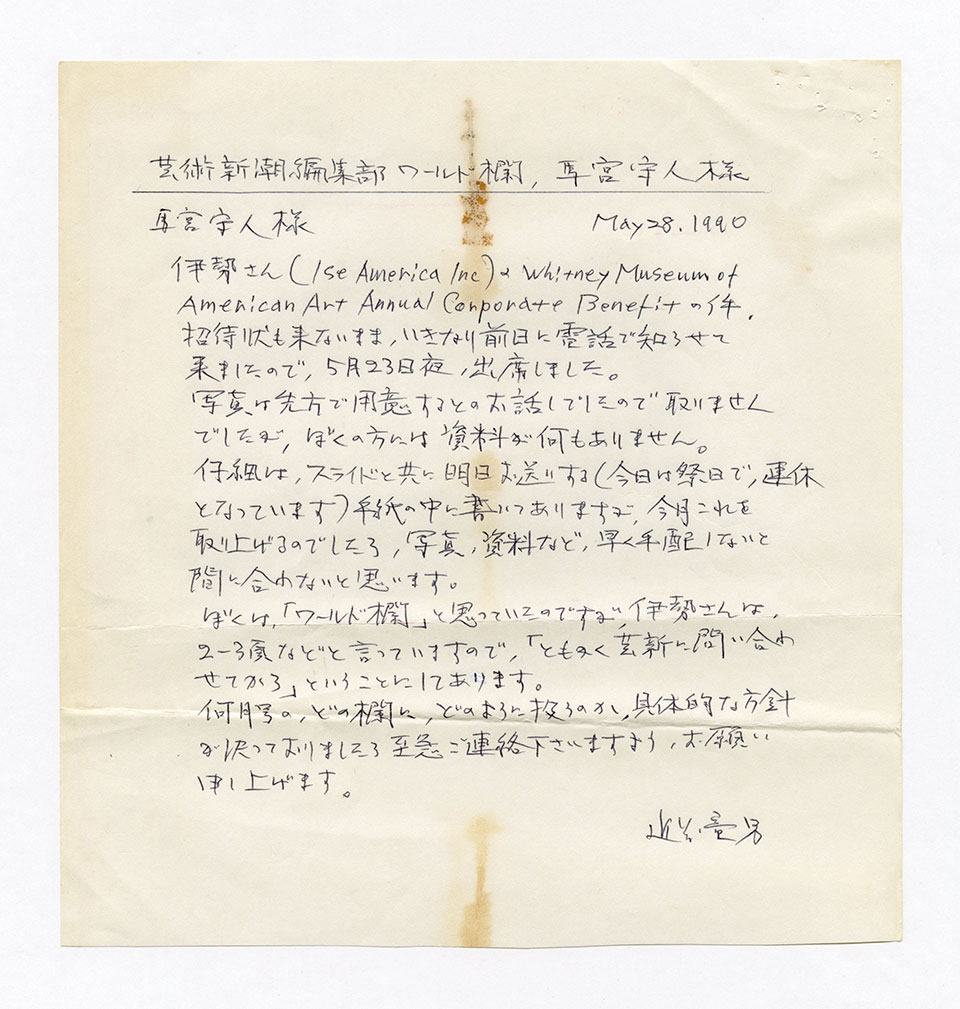 芸術新潮編集部 ワールド欄, 宮守人様
宮守人様 May 28. 1990
伊勢さん(Ise America Inc)と Whitney Museum of
American Art Annual Corporate Benefit の件.
招待状も来ないまま, いきなり前日に電話で知らせて
来ましたので, 5月23日夜, 出席しました。
写真は先方で用意するとのお話しでしたので取りません
でしたが, ぼくの方には資料が何もありません。
仔細は, スライドと共に明日お送りする(今日は祭日で, 連休
となっています)手紙の中に書いてありますが, 今月これを
取り上げるのでしたら, 写真, 資料など, 早く手配しないと
間に合わないと思います。
ぼくは,「ワールド欄」と思っていたのですが, 伊勢さんは,
2-3頁などと言っていますので,「ともかく芸新に問い合わ
せてから」ということにしてあります。
何月号の, どの欄に, どのように扱うのか, 具体的な方針
が決っておりましたら至急ご連絡下さいますよう, お願い
申し上げます。
近竜男